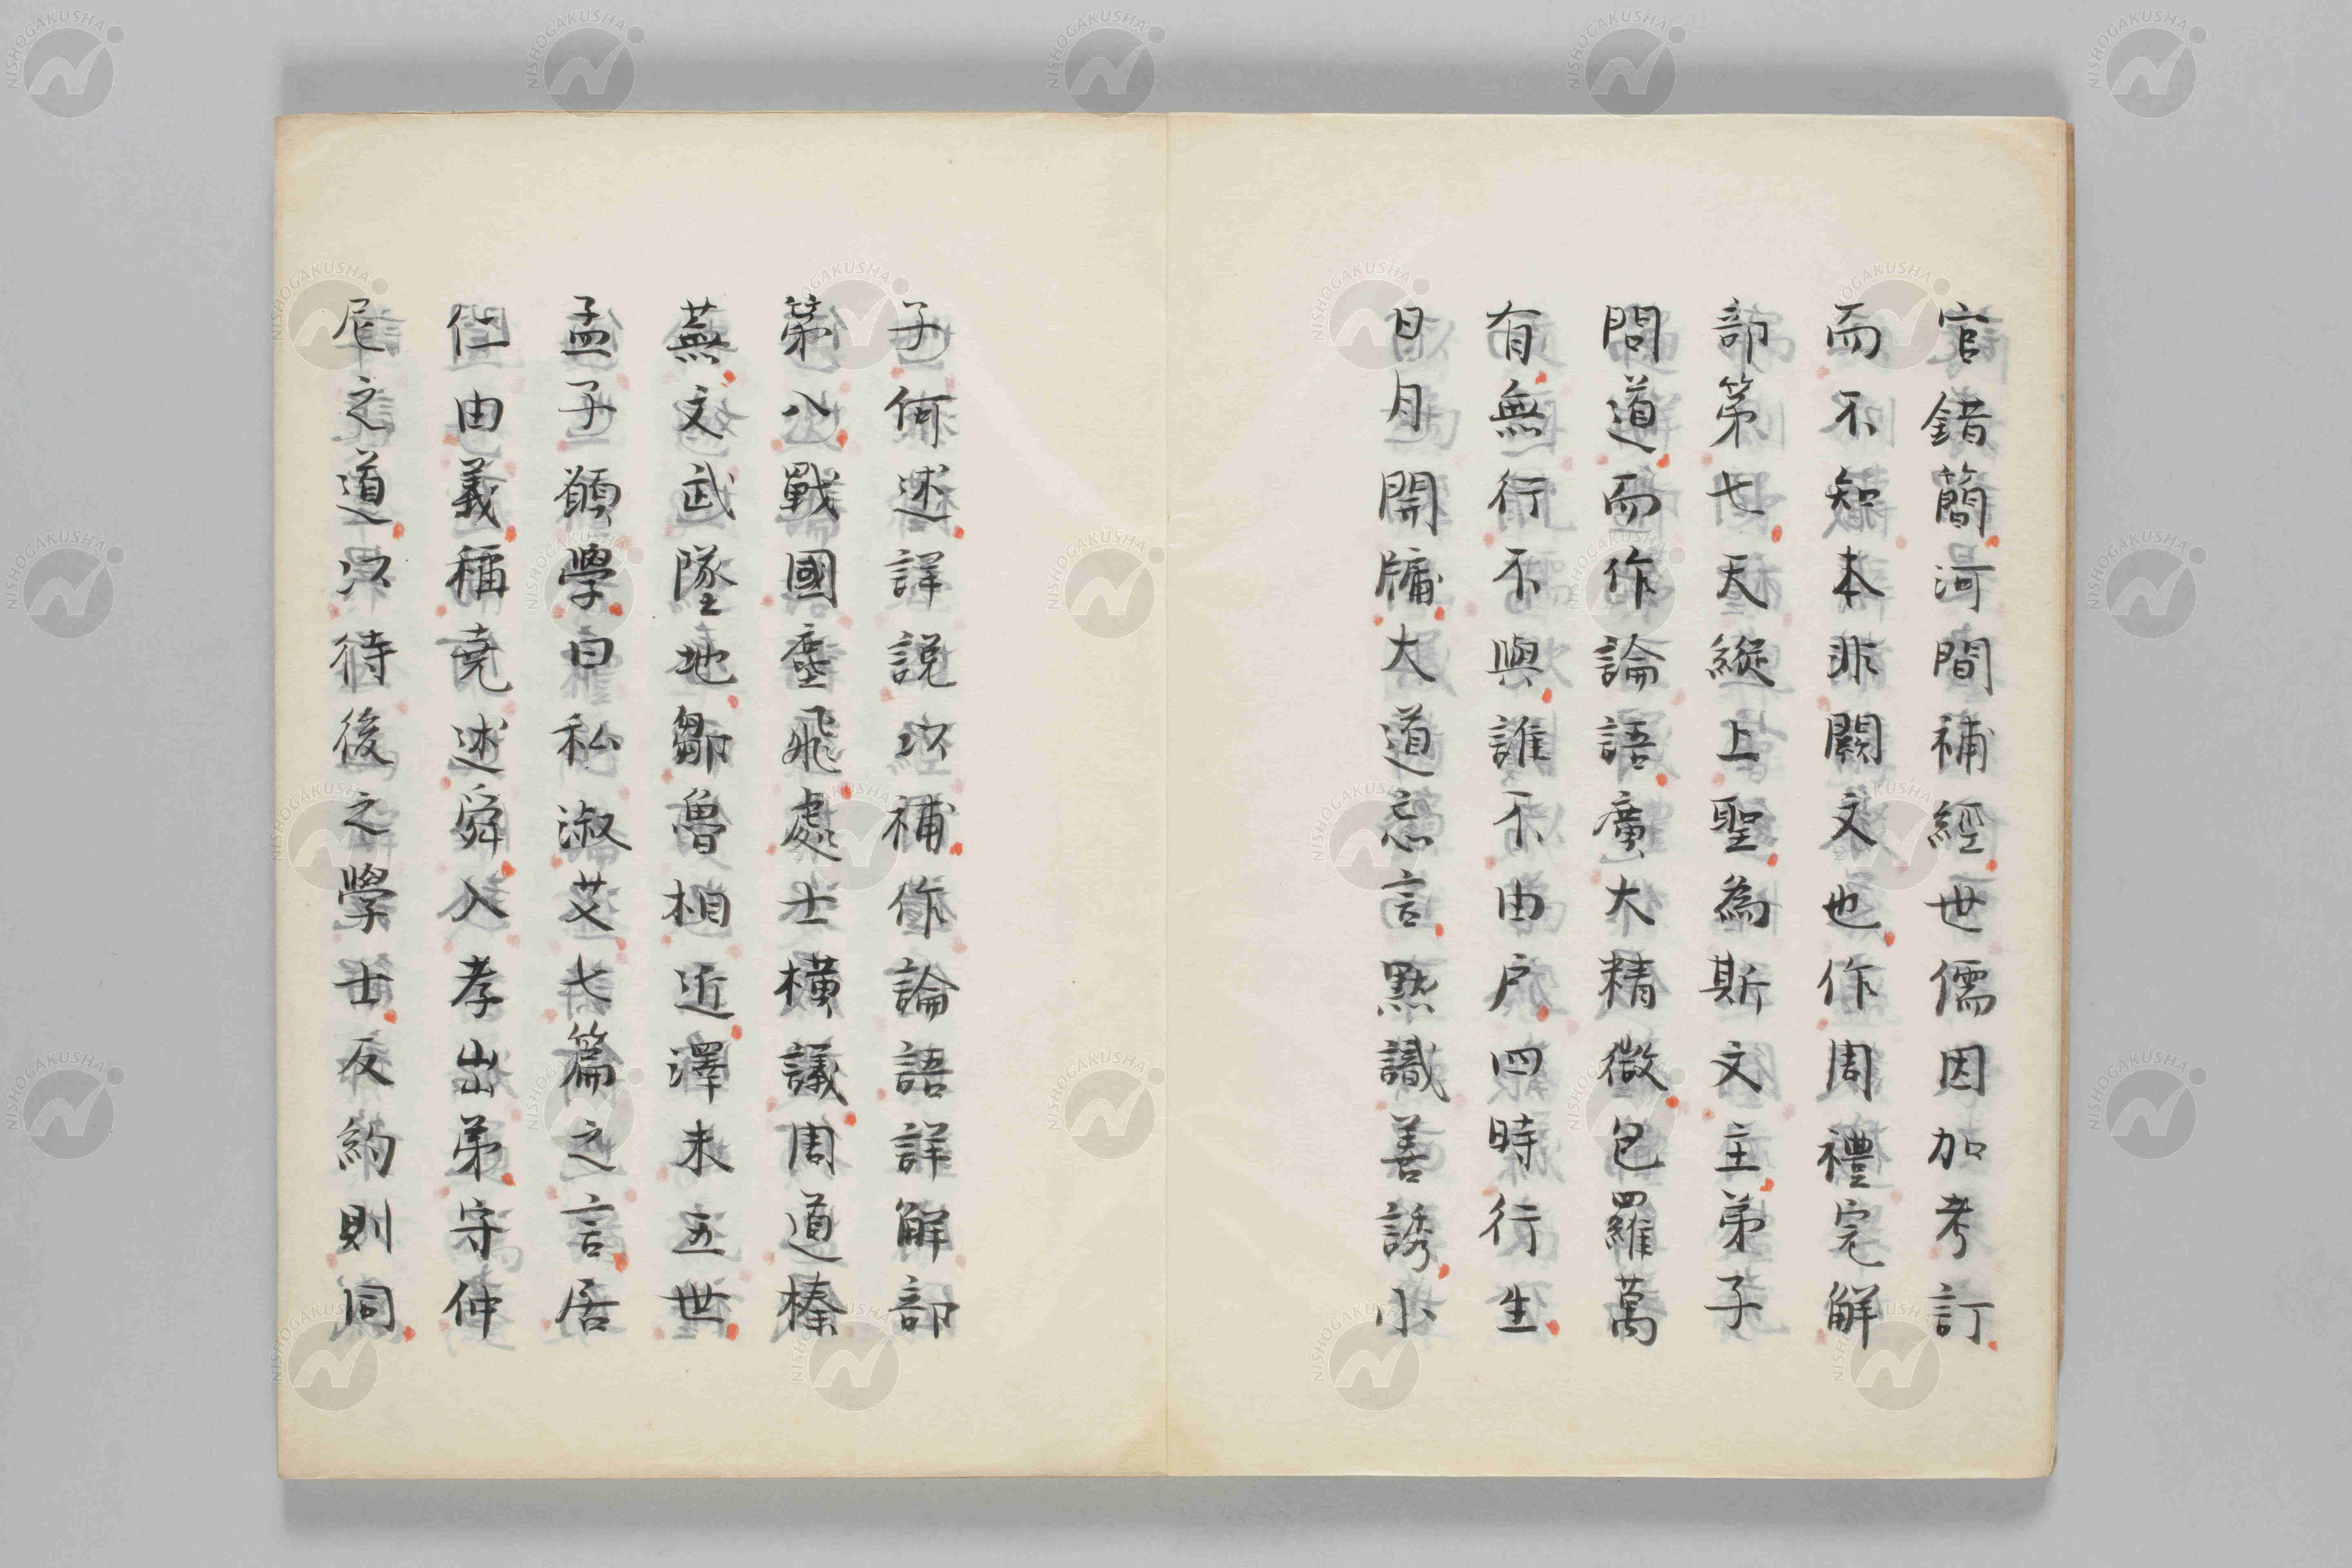 官錯簡河間補經世儒因加考訂
而不知本非闕文也作周禮完解
部第七天縱上聖為斯文主弟子
問道而作論語廣大精微包羅萬
有無行不與誰不由戶四時行生
日月開牖大道忘言默識善誘小
子何述詳説以補作論語詳解部
第八戰國塵飛處士橫議周道榛
蕪文武墜地鄒魯相近澤未五世
孟子願學曰私淑艾七篇之言居
仁由義稱堯述舜入孝出弟守仲
尼之道以待後之學士反約則同
NISHOGAKUSHA